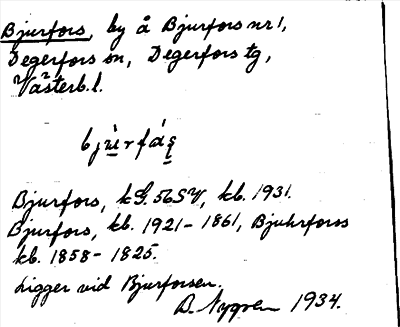 Bjurfors, by å Bjurfors nr 1,
Degerfors sn, Degerfors tg,
Västerb. l.
bjùrfás
Bjurfors, k G. 56 SV, kb. 1931.
Bjurfors, kb. 1921-1861, Bjuhrforss
kb. 1858-1825.
Ligger vid Bjurforsen.
B. Nygren 1934.